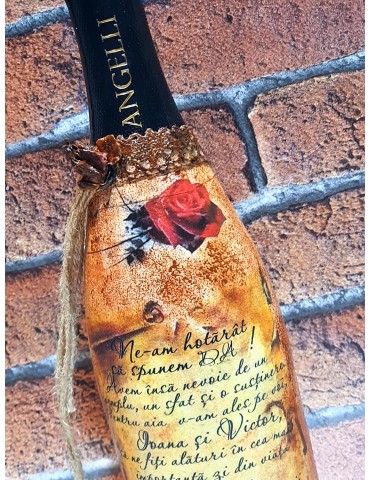 ANGELLI
Ne-am hotărât
să spunem DA !
Avem însă nevoie de un
un sfat și o
pentru aia v-am ales pe voi,
Ioana și Victor,
să ne fiți alături în cea mai
importantă zi din viața